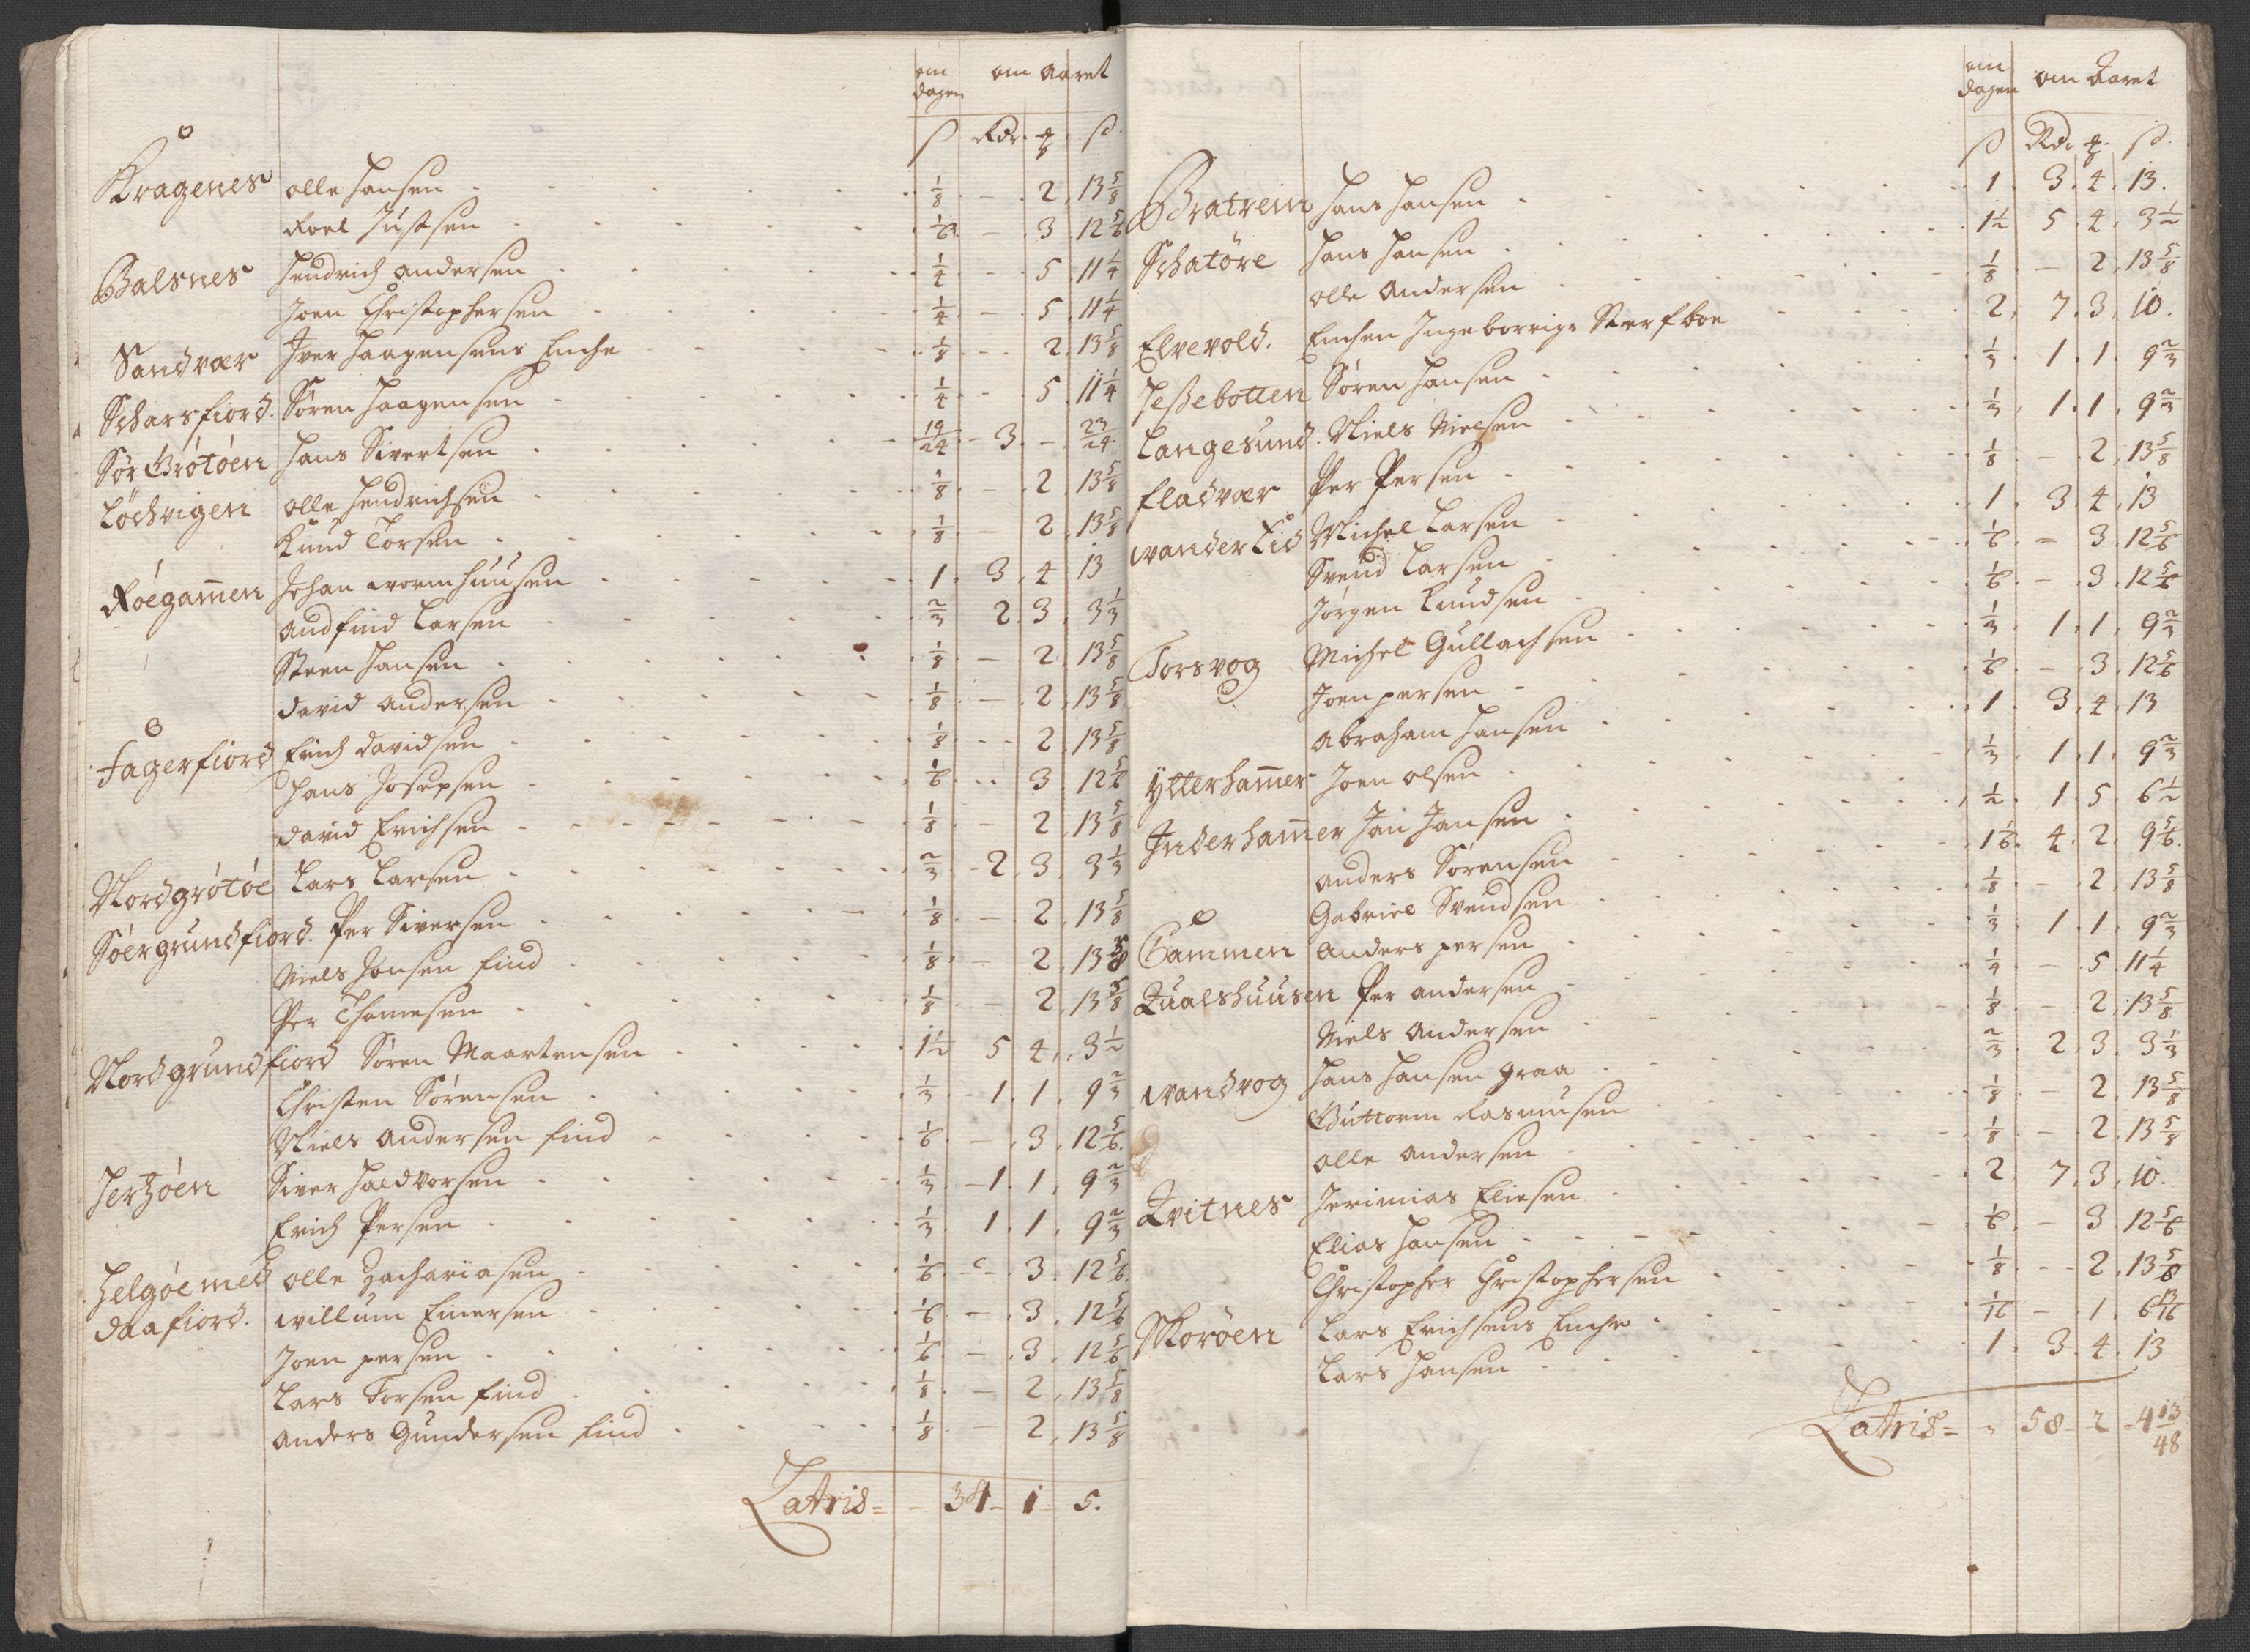 om dagen om Aaret
ß Rdr. ꝑ ß
Kragenes olle Hansen 1/8 - 2. 13 5/8
Roel Justsen 1/6 - 3. 12 5/6
Balsnes Hendrich Andersen 1/4 - 5. 11 1/4
Joen Christophersen 1/4 - 5. 11 1/4
Sandvær Iver Haagensens Enche 1/8 - 2. 13 5/8
Scharsfiord. Søren Haagensen 1/4 - 5. 11 1/4
Sør Grøtøen Hans Sivertsen 19/24 3. - 23/24
Løchvigen olle Hendrichsen 1/8 - 2. 13 5/8
Knud Torsen 1/8 - 2. 13 5/8
Røegam̄en Johan wormhuusen 1. 3. 4 13
Andfind Larsen 2/3 2. 3. 3 1/3
Steen Hansen 1/8 - 2. 13 5/8
David Andersen 1/8 - 2. 13 5/8
Fagerfiord Erich Davidsen 1/8 - 2. 13 5/8
Hans Josepsen 1/6 - 3. 12 5/6
David Erichsen 1/8 - 2. 13 5/8
Nordgrøtøe Lars Larsen 2/3 2. 3. 3 1/3
Søergrundfiord. Per Siversen 1/8 - 2. 13 5/8
Niels Jonsen find 1/8 - 2. 13 5/8
Per Thomesen 1/8 - 2. 13 5/8
Nordgrundfiord Søren Maartensen 1 1/2 5 4. 3 1/2
Christen Sørensen 1/3 1. 1. 9 2/3
Niels Andersen find 1/6 - 3. 12 5/6
Hertzøen Siver Haldvorsen 1/3 1. 1. 9 2/3
Erich Persen 1/3 1. 1. 9 2/3
Helgøe med olle Zachariasen 1/6 - 3. 12 5/6
daafiord. willum Einersen 1/6 - 3. 12 5/6
Joen persen 1/6 - 3. 12 5/6
Lars Torsen find 1/8 - 2. 13 5/8
Anders Gundersen find 1/8 2. 13 5/8
Latris = - 34 - 1 5.
om dagen om Aaret
ß Rdr ꝑ. ß.
Bratrein Hans Hansen 1. 3. 4. 13.
Schatøre Hans Hansen 1 1/2 5. 4. 3 1/2
olle Andersen 1/8 - 2. 13 5/8
Elvevold. Enchen Ingeborrigs Sterfboe 2. 7. 3. 10.
Jeßebotten Søren Hansen 1/3 1. 1. 9 2/3
Langesund. Niels Nielsen 1/3 1. 1. 9 2/3
fladvær Per Persen 1/8 - 2. 13 5/8
wander Eid Michel Larsen 1. 3. 4. 13
Svend Larsen 1/6 - 3. 12 5/6
Jørgen Knudsen 1/6 - 3. 12 5/6
Torsvog Michel Gullachsen 1/3 1. 1. 9 2/3
Joen persen 1/6 - 3. 12 5/6
Abraham Hansen 1. 3. 4. 13
Ytterham̄er Joen olsen 1/3 1. 1. 9 2/3
Inderham̄er Jan Jansen 1/2 1. 5. 6 1/2
Anders Sørensen 1 1/6. 4. 2. 9 5/6.
Gabriel Svendsen 1/8 - 2. 13 5/8
Gammen Anders persen 1/3 1. 1. 9 2/3
Qualshuusen Per Andersen 1/4 - 5. 11 1/4
Niels Andersen 1/8 - 2. 13 5/8
wandvog Hans Hansen graa 2/3 2. 3. 3 1/3
Guttorm Rasmusen 1/8 - 2. 13 5/8
olle Andersen 1/8 - 2. 13 5/8
Qvitnes Jerimias Eliesen 2 7. 3. 10.
Elias Hansen 1/6 - 3 12 5/6
Christopher Christophersen 1/8 - 2. 13 5/8
Skorøen Lars Erichsens Enche 1/16 - 1. 6 13/16
Lars Hansen 1. 3. 4. 13
Latris = - 58 - 2 - 4 13/48